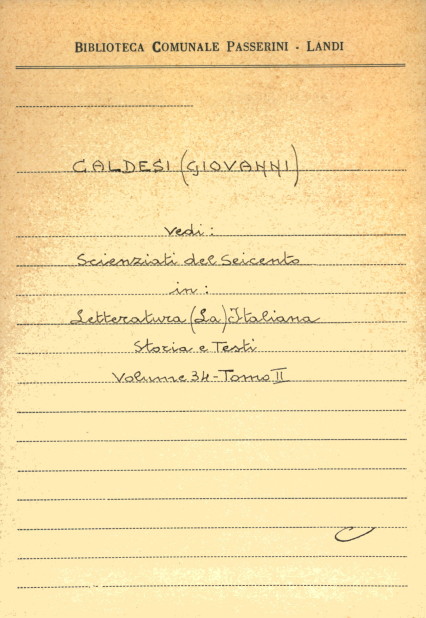 BIBLIOTECA COMUNALE PASSERINI - LANDI
CALDESI (GIOVANNI)
vedi:
Scienziati del Seicento
in:
Letteratura (La) Italiana
Storia e Testi
Volume 34 - Tomo II